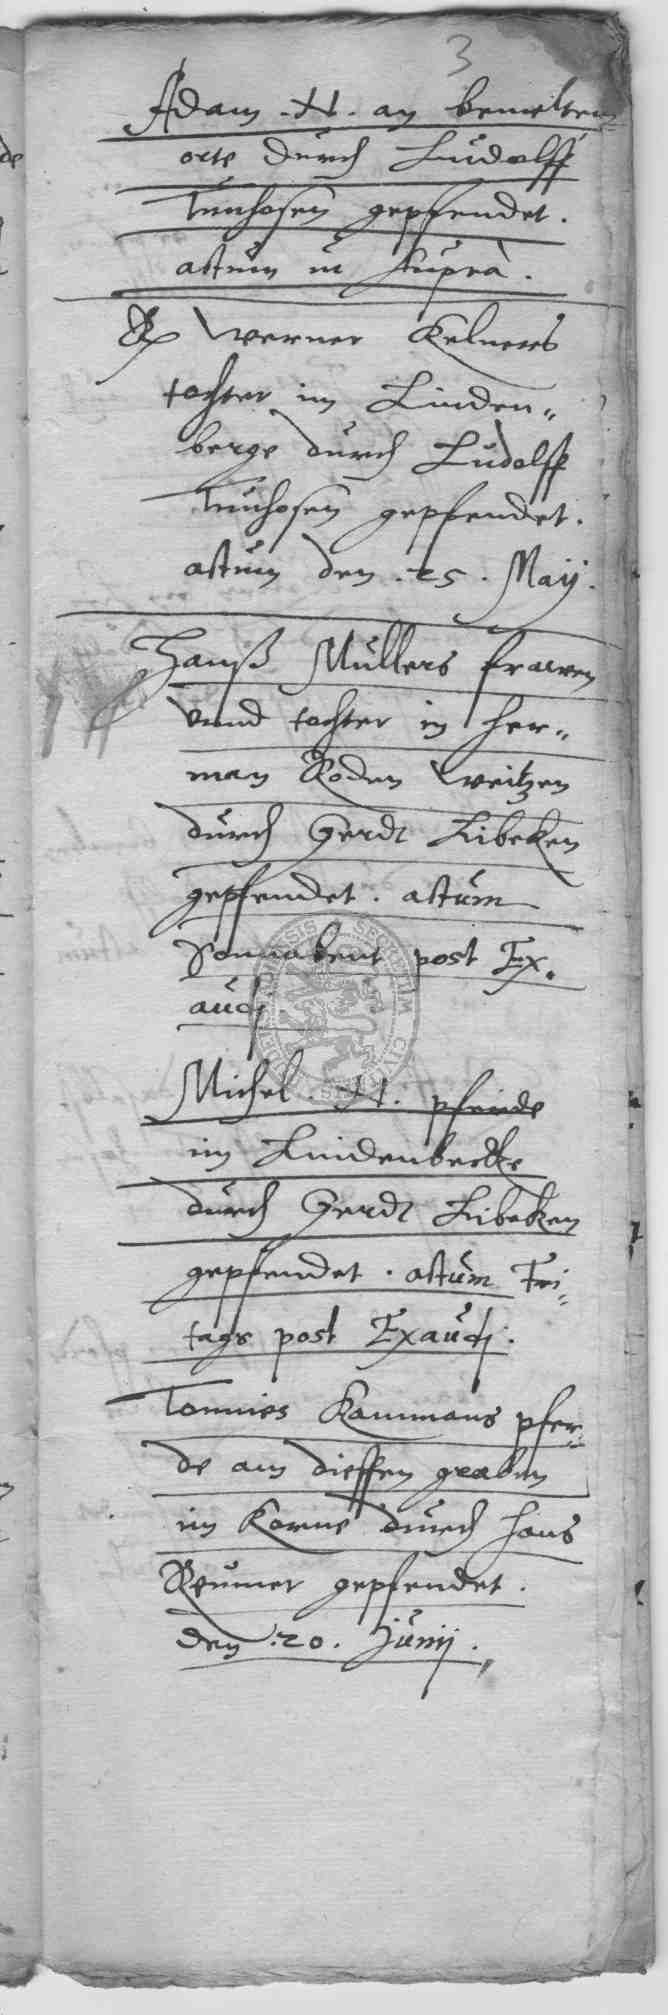 3
Adam .H. an bemeltem
orte durch Ludolff
Tunhosen gepfendet.
actum ut supra.
Werner Kelners
tochter im Linden„
berge durch Ludolff
Tunhosen gepfendet.
actum den .25. Maij.
Hanß Mullers frawen
vnnd tochter in Her„
man Roden weitzen
durch Gerdt Libeken
gepfendet. actum
Sonnabent post Ex„
audj
Michel .H. pferde
im Lindenberke
durch Gerdt Libeken
gepfendet. actum Fri„
tags post Exaudj.
Tonnies Kaumans pfer„
de am dieffen graben
im Korne durch Hans
Reumer gepfendet.
den .20. Junij.